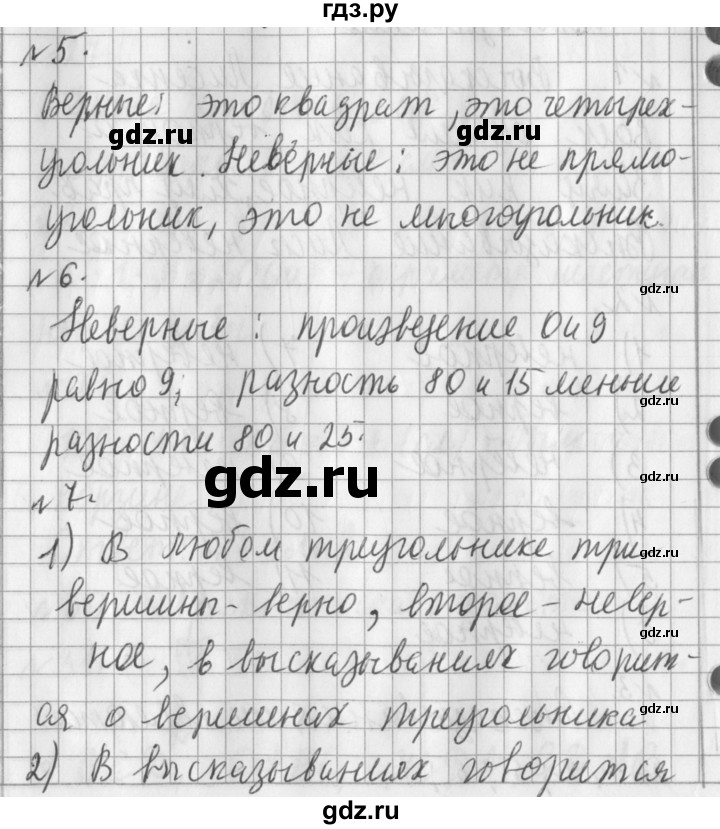 гдз.ру
№5.
Верные: это квадрат, это четырех-
gdz.ru gdz.ru
угольник. Неверные: это не прямо-
угольник, это не многоугольник.
№6.
gdz.ru
Неверные: произведение 0 и 9
равно 9; разность 80 и 15 меньше
gdz.ru
разности 80 и 25.
gdz.ru
gdz.ru
№7.
1) В любом треугольнике три
gdz.ru
вершины - верно, второе - невер-
gdz.ru
ное, в высказываниях говорит-
ся о вершинах треугольника
gdz.ru
2) В высказываниях говорится
gdz.ru
gdz.ru